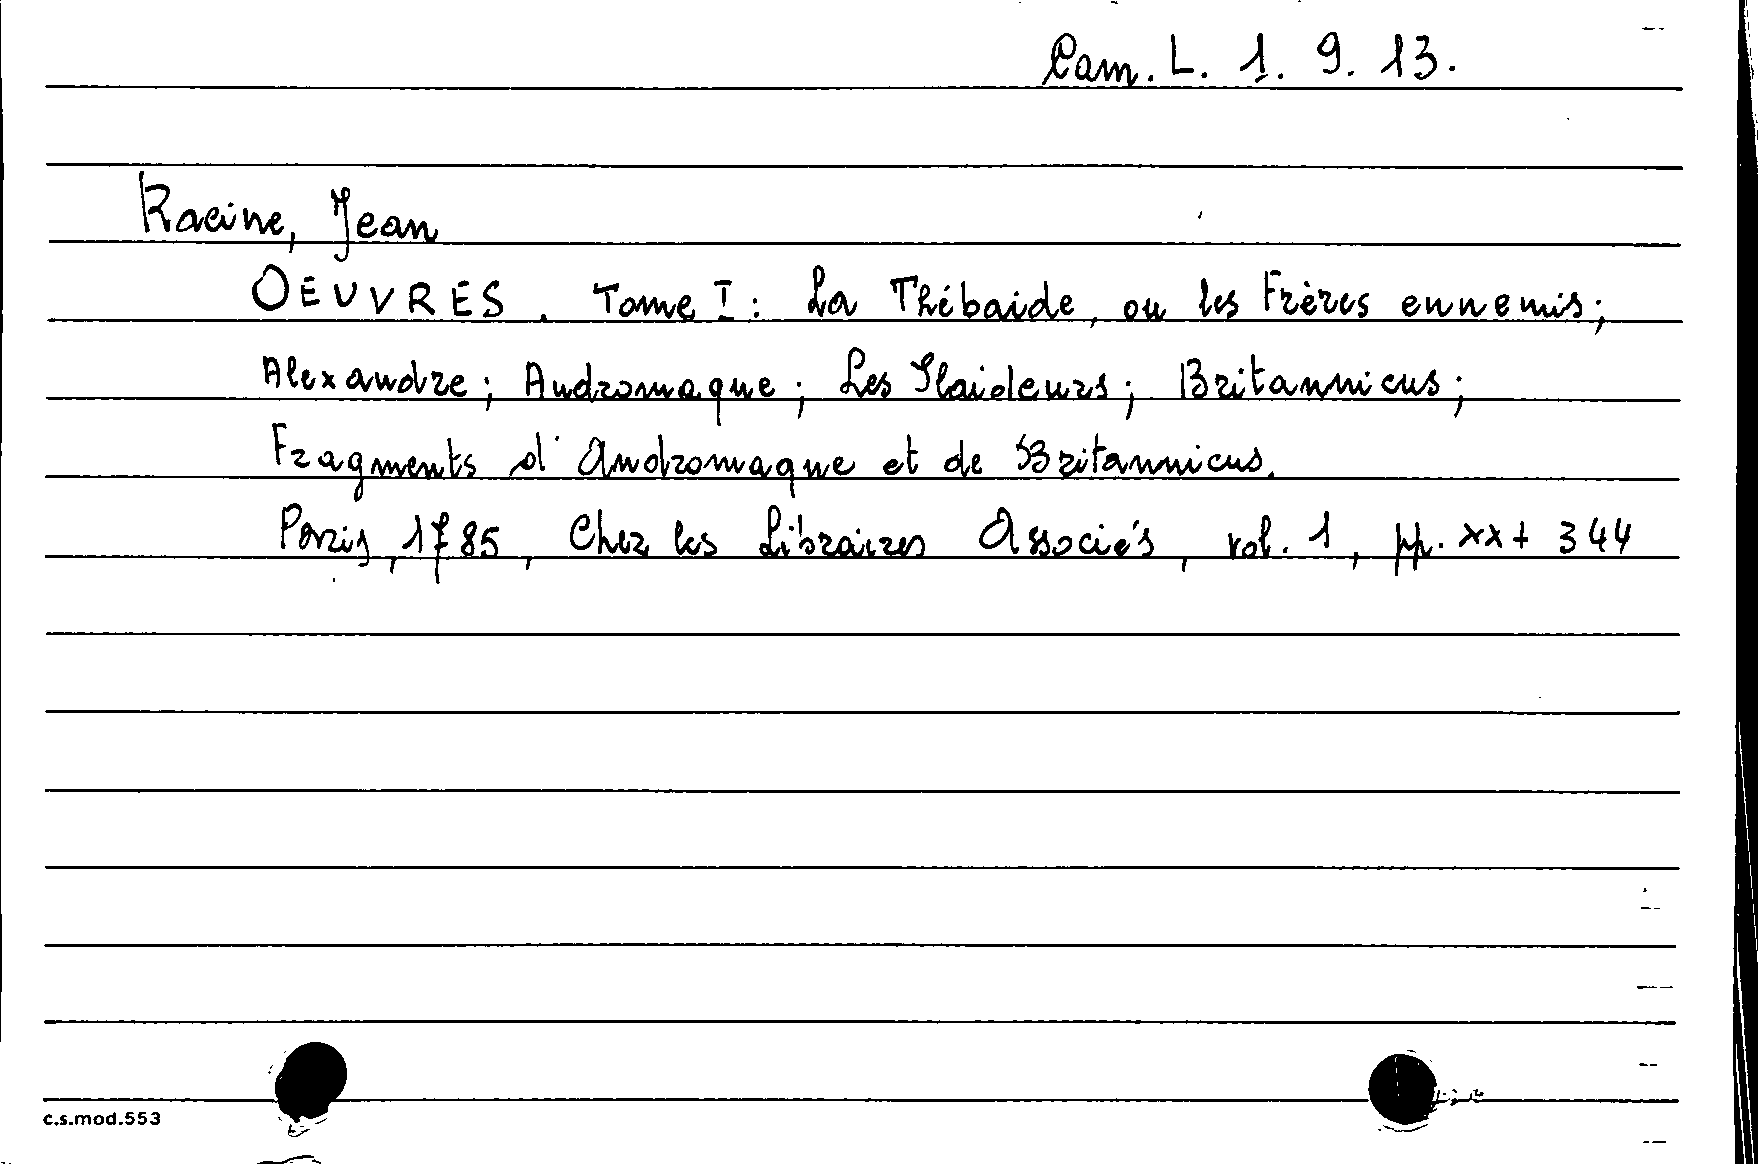 Cam. L. 1. 9. 13.
Racine, Jean
OEUVRES. Tome I: La Thébaide, ou les Frères ennemis;
Alexandre; Andromaque; Les Plaideurs; Britannicus;
Fragments d'Andromaque et de Britannicus.
Paris, 1785, Chez les Libraires Associés, vol. 1, pp. xx+ 344
c.s.mod.553